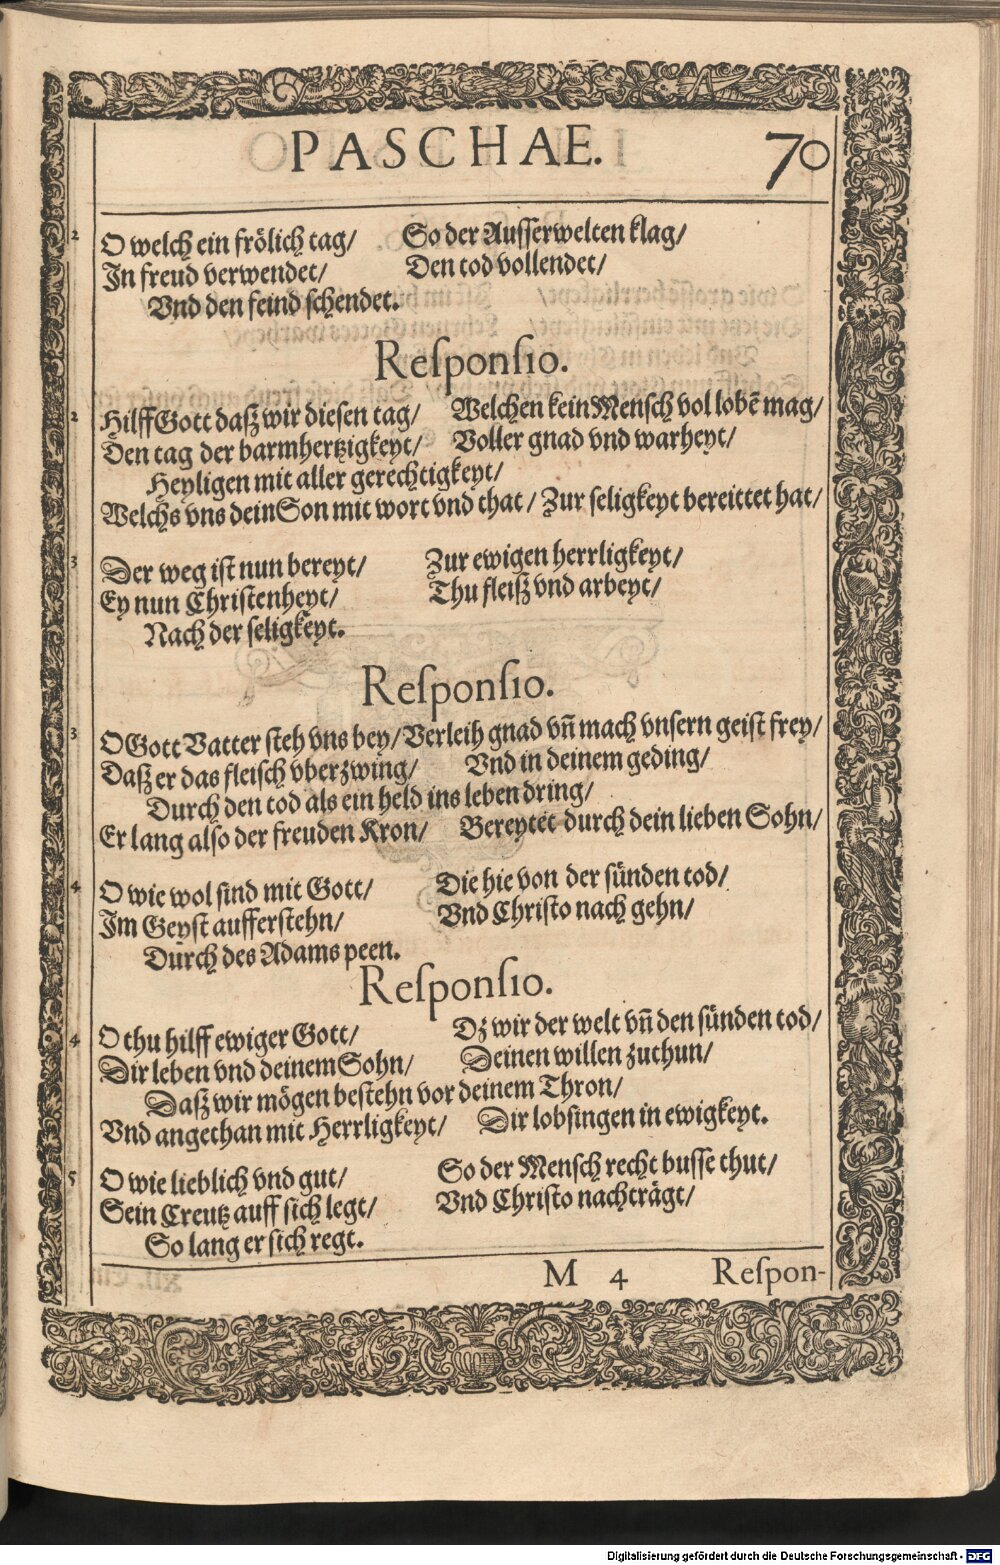 PASCHAE. 70
2 O welch ein frölich tag/ So der Ausserwelten klag/
In freud verwendet/ Den tod vollendet/
Vnd den feind schendet.
Responsio.
2 Hilff Gott daß wir diesen tag/ Welchen kein Mensch vol lobē mag/
Den tag der barmhertzigkeyt/ Voller gnad vnd warheyt/
Heyligen mit aller gerechtigkeyt/
Welchs vns dein Son mit wort vnd that/ Zur seligkeyt bereittet hat/
3 Der weg ist nun bereyt/ Zur ewigen herrligkeyt/
Ey nun Christenheyt/ Thu fleiß vnd arbeyt/
Nach der seligkeyt.
Responsio.
3 O Gott Vatter steh vns bey/ Verleih gnad vñ mach vnsern geist frey/
Daß er das fleisch vberzwing/ Vnd in deinem geding/
Durch den tod als ein held ins leben dring/
Er lang also der freuden Kron/ Bereytet durch dein lieben Sohn/
4 O wie wol sind mit Gott/ Die hie von der sünden tod/
Im Geyst aufferstehn/ Vnd Christo nach gehn/
Durch des Adams peen.
Responsio.
4 O thu hilff ewiger Gott/ Dz wir der welt vñ den sünden tod/
Dir leben vnd deinem Sohn/ Deinen willen zuthun/
Daß wir mögen bestehn vor deinem Thron/
Vnd angethan mit Herrligkeyt/ Dir lobsingen in ewigkeyt.
5 O wie lieblich vnd gut/ So der Mensch recht busse thut/
Sein Creutz auff sich legt/ Vnd Christo nachträgt/
So lang er sich regt.
M 4 Respon-
Digitalisierung gefördert durch die Deutsche Forschungsgemeinschaft - DFG